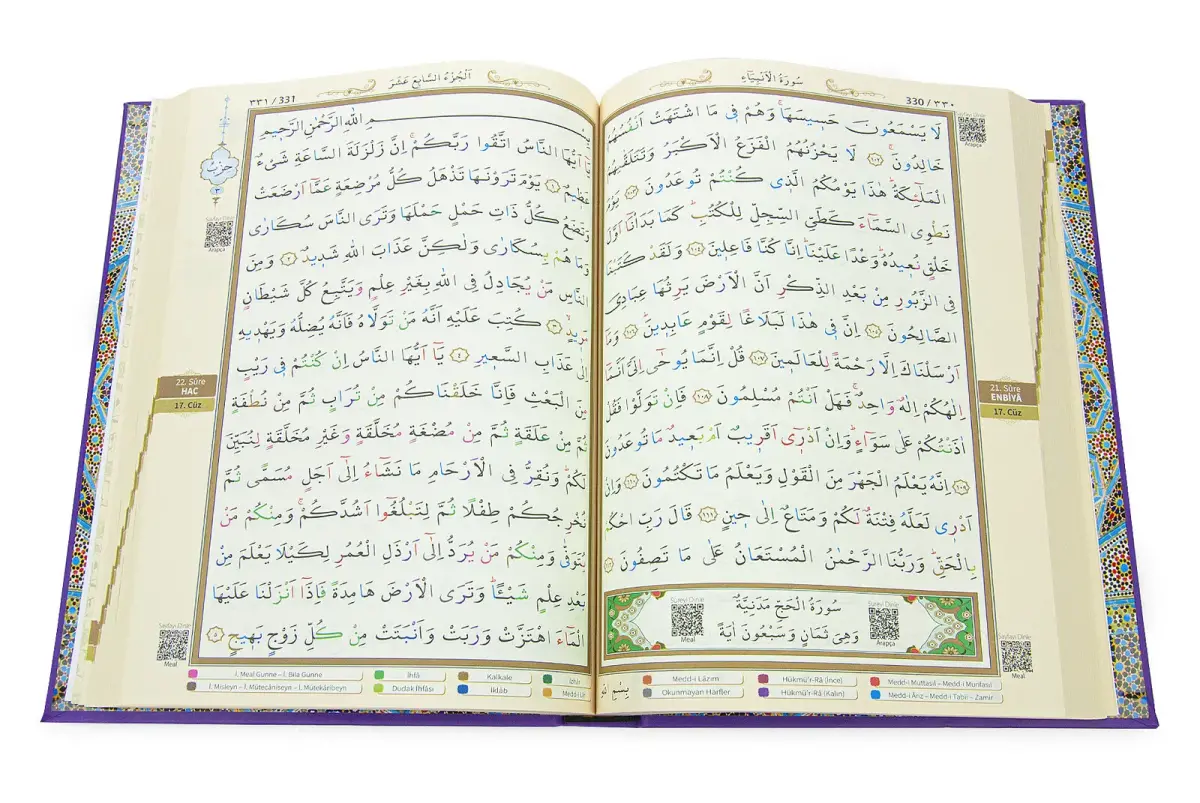 ٣٣٠ / 330
سُورَةُ الْاَنْبِيَاءِ
لَا يَسْمَعُونَ حَسٖيسَهَاۚ وَهُمْ فٖى مَا اشْتَهَتْ اَنْفُسُهُمْ
خَالِدُونَۚ ﴿١٠٢﴾ لَا يَحْزُنُهُمُ الْفَزَعُ الْاَكْبَرُ وَتَتَلَقّٰيهُمُ
الْمَلٰٓئِكَةُؕ هٰذَا يَوْمُكُمُ الَّذٖى كُنْتُمْ تُوعَدُونَ ﴿١٠٣﴾ يَوْمَ
نَطْوِى السَّمَٓاءَ كَطَىِّ السِّجِلِّ لِلْكُتُبِؕ كَمَا بَدَأْنَٓا اَوَّلَ
خَلْقٍ نُعٖيدُهُؕ وَعْدًا عَلَيْنَاؕ اِنَّا كُنَّا فَاعِلٖينَ ﴿١٠٤﴾ وَلَقَدْ كَتَبْنَا
فِى الزَّبُورِ مِنْ بَعْدِ الذِّكْرِ اَنَّ الْاَرْضَ يَرِثُهَا عِبَادِىَ
الصَّالِحُونَ ﴿١٠٥﴾ اِنَّ فٖى هٰذَا لَبَلَاغًا لِقَوْمٍ عَابِدٖينَؕ ﴿١٠٦﴾ وَمَٓا
اَرْسَلْنَاكَ اِلَّا رَحْمَةً لِلْعَالَمٖينَ ﴿١٠٧﴾ قُلْ اِنَّمَا يُوحٰٓى اِلَىَّ اَنَّمَٓا
اِلٰهُكُمْ اِلٰهٌ وَاحِدٌۚ فَهَلْ اَنْتُمْ مُسْلِمُونَ ﴿١٠٨﴾ فَاِنْ تَوَلَّوْا فَقُلْ
اٰذَنْتُكُمْ عَلٰى سَوَٓاءٍؕ وَاِنْ اَدْرٖٓى اَقَرٖيبٌ اَمْ بَعٖيدٌ مَا تُوعَدُونَ
﴿١٠٩﴾ اِنَّهُ يَعْلَمُ الْجَهْرَ مِنَ الْقَوْلِ وَيَعْلَمُ مَا تَكْتُمُونَ ﴿١١٠﴾ وَاِنْ
اَدْرٖى لَعَلَّهُ فِتْنَةٌ لَكُمْ وَمَتَاعٌ اِلٰى حٖينٍ ﴿١١١﴾ قَالَ رَبِّ احْكُمْ
بِالْحَقِّؕ وَرَبُّنَا الرَّحْمٰنُ الْمُسْتَعَانُ عَلٰى مَا تَصِفُونَ ﴿١١٢﴾
سُورَةُ الْحَجِّ مَدَنِيَّةٌ
وَهِىَ ثَمَانٍ وَسَبْعُونَ اٰيَةً
Sureyi Dinle
Meal
Sureyi Dinle
Arapça
Sayfayı Dinle
Arapça
21. Sûre
ENBİYÂ
17. Cüz
Sayfayı Dinle
Meal
Medd-i Lâzım
Hükmü'r-Râ (İnce)
Medd-i Muttasıl – Medd-i Munfasıl
Okunmayan Harfler
Hükmü'r-Râ (Kalın)
Medd-i Ârız – Medd-i Tabiî – Zamir
٣٣١ / 331
اَلْجُزْءُ السَّابِعَ عَشَرَ
بِسْمِ اللّٰهِ الرَّحْمٰنِ الرَّحٖيمِ
يَٓا اَيُّهَا النَّاسُ اتَّقُوا رَبَّكُمْۚ اِنَّ زَلْزَلَةَ السَّاعَةِ شَىْءٌ
عَظٖيمٌ ﴿١﴾ يَوْمَ تَرَوْنَهَا تَذْهَلُ كُلُّ مُرْضِعَةٍ عَمَّٓا اَرْضَعَتْ
وَتَضَعُ كُلُّ ذَاتِ حَمْلٍ حَمْلَهَا وَتَرَى النَّاسَ سُكَارٰى
وَمَا هُمْ بِسُكَارٰى وَلٰكِنَّ عَذَابَ اللّٰهِ شَدٖيدٌ ﴿٢﴾ وَمِنَ
النَّاسِ مَنْ يُجَادِلُ فِى اللّٰهِ بِغَيْرِ عِلْمٍ وَيَتَّبِعُ كُلَّ شَيْطَانٍ
مَرٖيدٍۙ ﴿٣﴾ كُتِبَ عَلَيْهِ اَنَّهُ مَنْ تَوَلَّاهُ فَاَنَّهُ يُضِلُّهُ وَيَهْدٖيهِ
اِلٰى عَذَابِ السَّعٖيرِ ﴿٤﴾ يَٓا اَيُّهَا النَّاسُ اِنْ كُنْتُمْ فٖى رَيْبٍ
مِنَ الْبَعْثِ فَاِنَّا خَلَقْنَاكُمْ مِنْ تُرَابٍ ثُمَّ مِنْ نُطْفَةٍ
ثُمَّ مِنْ عَلَقَةٍ ثُمَّ مِنْ مُضْغَةٍ مُخَلَّقَةٍ وَغَيْرِ مُخَلَّقَةٍ لِنُبَيِّنَ
لَكُمْؕ وَنُقِرُّ فِى الْاَرْحَامِ مَا نَشَٓاءُ اِلٰٓى اَجَلٍ مُسَمًّى ثُمَّ
نُخْرِجُكُمْ طِفْلًا ثُمَّ لِتَبْلُغُٓوا اَشُدَّكُمْۚ وَمِنْكُمْ مَنْ
يُتَوَفّٰى وَمِنْكُمْ مَنْ يُرَدُّ اِلٰٓى اَرْذَلِ الْعُمُرِ لِكَيْلَا يَعْلَمَ مِنْ
بَعْدِ عِلْمٍ شَيْـًٔاؕ وَتَرَى الْاَرْضَ هَامِدَةً فَاِذَٓا اَنْزَلْنَا عَلَيْهَا
الْمَٓاءَ اهْتَزَّتْ وَرَبَتْ وَاَنْبَتَتْ مِنْ كُلِّ زَوْجٍ بَهٖيجٍ ﴿٥﴾
حزب
٣
Sayfayı Dinle
Arapça
22. Sûre
HAC
17. Cüz
Sayfayı Dinle
Meal
İ. Meal Gunne – İ. Bila Gunne
İhfâ
Kalkale
İzhâr
İ. Misleyn – İ. Mütecâniseyn – İ. Mütekâribeyn
Dudak İhfâsı
İklâb